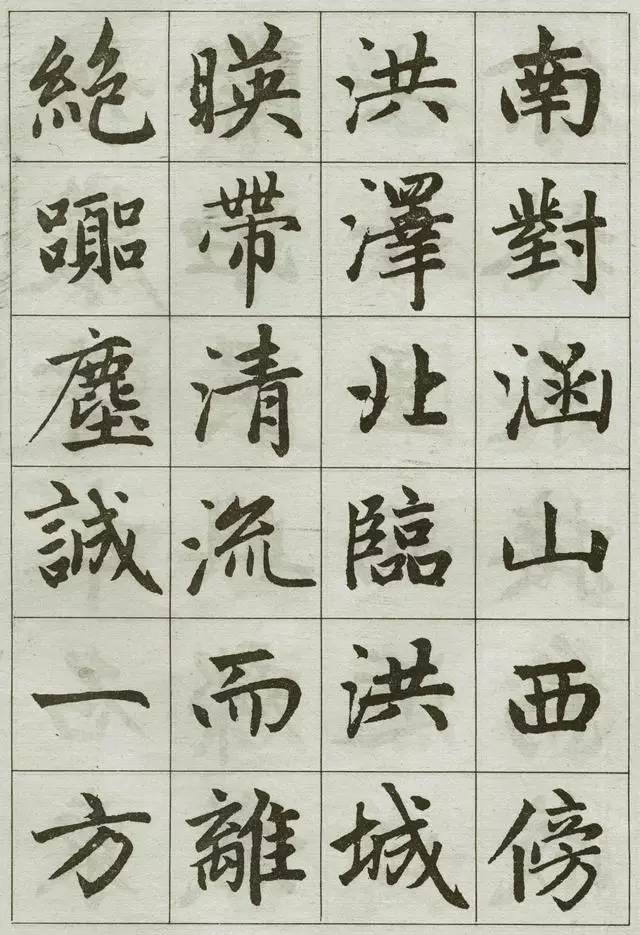 南對涵山西傍
洪澤北臨洪城
暎帶清流而離
絶嚻塵誠一方